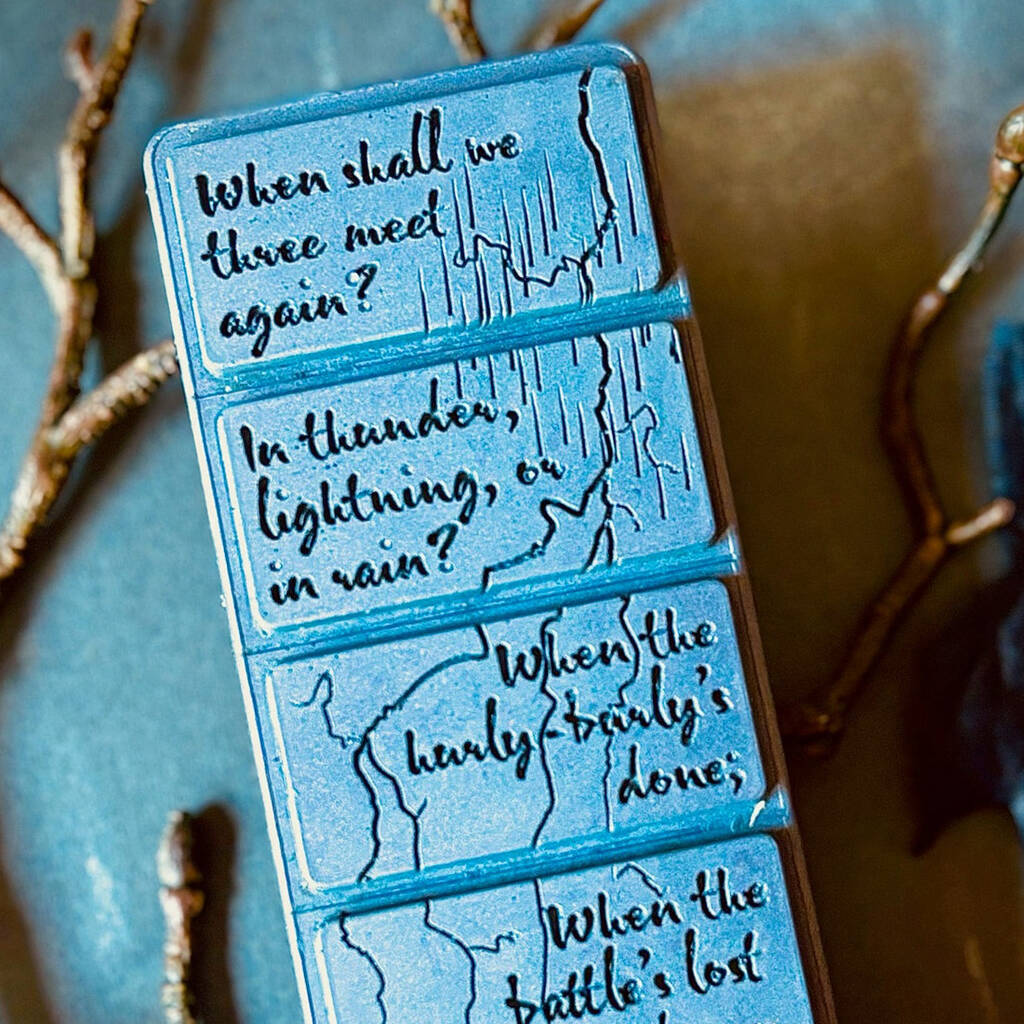 When shall we
three meet
again?
In thunder,
lightning, or
in rain?
When the
hurly-burly's
done;
When the
battle's lost